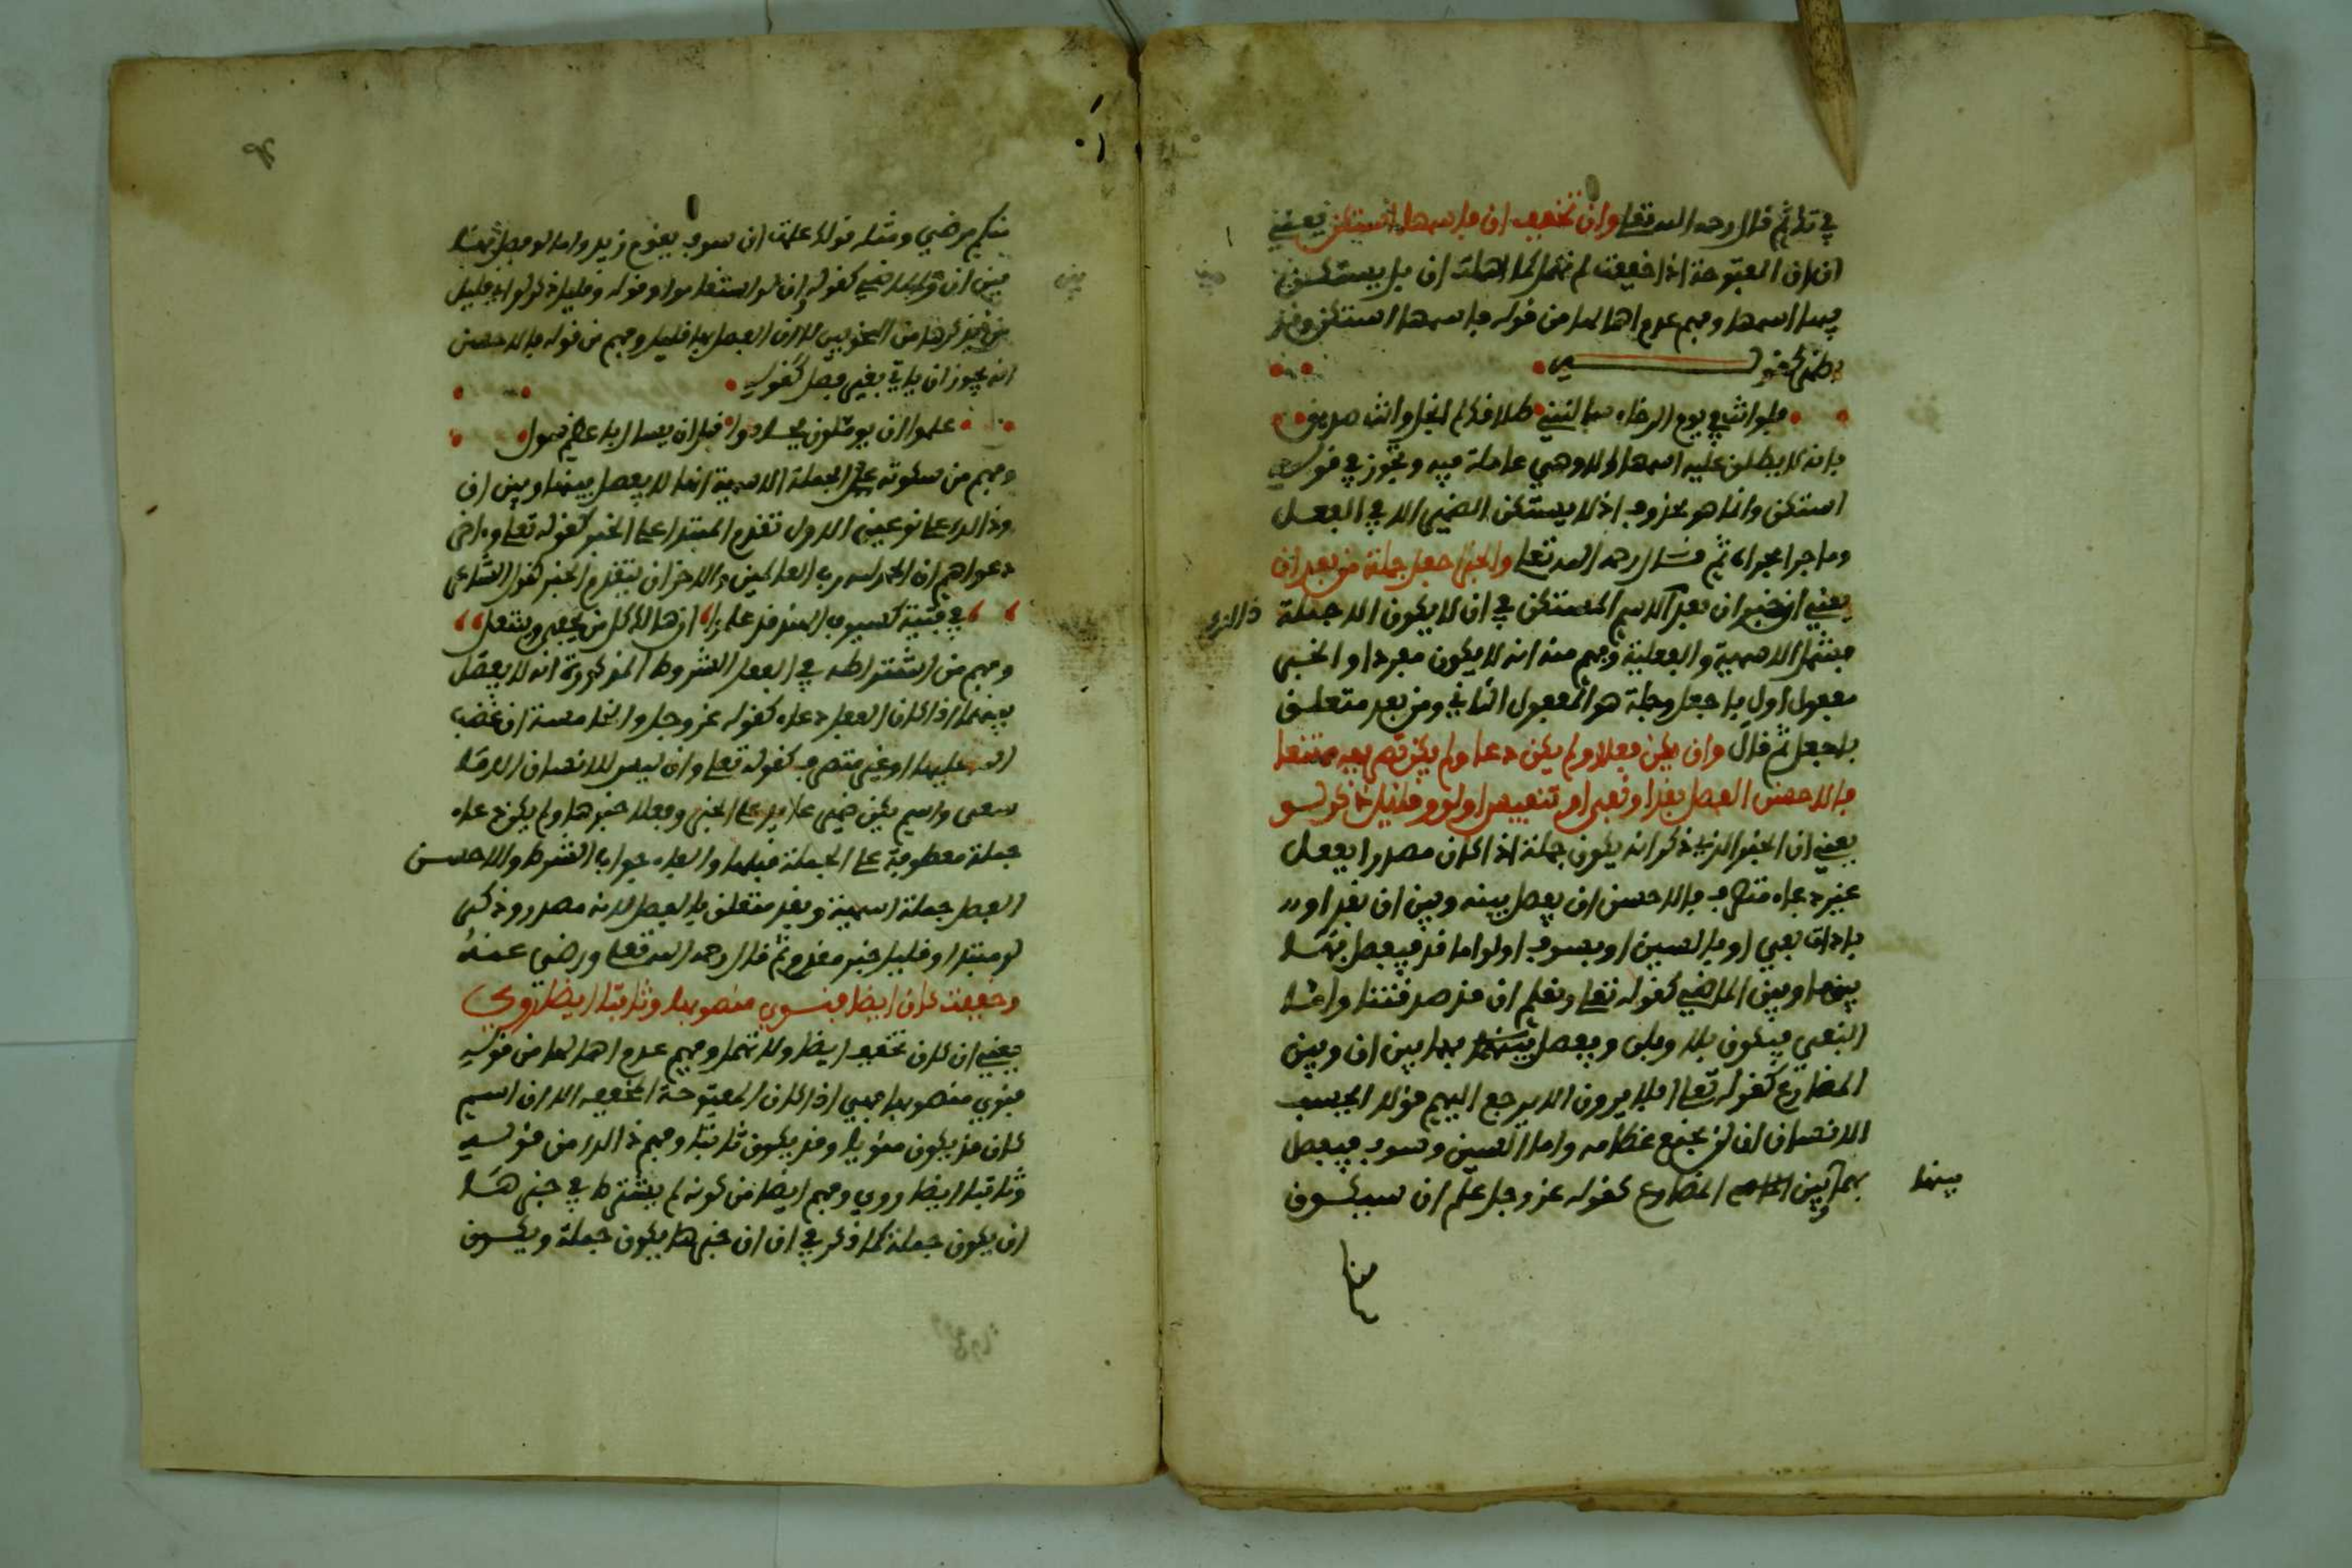 في تلو ثم قال رحمه الله تعلى وان تخفف ان فاسمها استكن يعني
ان ان المفتوحة اذا خففت لم تهمل كما اهملت ان بل يستكن
فيها اسمها وفهم عدم اهمالها من قوله فاسمها استكن وقد
يظهر كقوله
فلو انك في يوم الرخاء سالتني طلاقك لم ابخل وانت صديق
بانه لا يطلق عليه اسمها الا وهي عاملة فيه وتجوز في قوله
استكن وانما هو محذوف اذ لا يستكن الضمير الا في الفعل
وما جرى مجراه ثم قال رحمه الله تعلى والخبر اجعل جملة من بعد ان
يعني ان خبر ان بعد الاسم المستكن في ان لا يكون الا جملة
فشمل الاسمية والفعلية وفهم منه انه لا يكون مفردا والخبر
مفعول اول باجعل وجملة هو المفعول الثاني ومن بعد متعلق
باجعل ثم قال وان يكن فعلا ولم يكن دعا ولم يكن تصريفه ممتنعا
فالاحسن الفصل بقد او نفي او تنفيس او لو وقليل ذكر لو
يعني ان الخبر الذي ذكر انه يكون جملة اذا كان مصدرا بفعل
غير دعاء متصرف فالاحسن ان يفصل بينه وبين ان بقد او
باداة نفي او بالسين او بسوف او لو اما قد فيفصل بها
بينها وبين الماضي كقوله تعلى ونعلم ان قد صدقتنا واما
النفي فيكون بلا وبلن ويفصل بها بين ان وبين
المضارع كقوله تعلى افلا يرون الا يرجع اليهم قولا ايحسب
الانسان ان لن نجمع عظامه واما السين وسوف فيفصل
بهما بينها وبين المضارع كقوله عز وجل علم ان سيكون
منكم مرضى ومثله قولك علمت ان سوف يقوم زيد واما لو فيفصل بها
بين ان والماضي كقوله وان لو استقاموا وقوله وقليل ذكر لو اي قليل
من ذكرها من النحويين لا ان الفصل بها قليل وفهم من قوله فالاحسن
انه يجوز ان ياتي بغير فصل كقوله
علموا ان يوملون فجادوا قبل ان يسالوا باعظم سول
وفهم من سكوته عن الجملة الاسمية انها لا يفصل بينها وبين ان
وذالك على نوعين الاول تقدم المبتدا على الخبر كقوله تعلى واخر
دعواهم ان الحمد لله رب العالمين والاخر ان يتقدم الخبر كقول الشاعر
في فتية كسيوف الهند قد علموا ان هالك كل من يحفى وينتعل
وفهم من اشتراطه في الفعل الشروط المذكورة انه لا يفصل
بينهما اذا كان الفعل دعاء كقوله عز وجل والخامسة ان غضب
الله عليها او غير متصرف كقوله تعلى وان ليس للانسان الا ما
سعى واسم يكن ضمير عائد على الخبر وفعلا خبرها ولم يكن دعاء
جملة معطوفة على الجملة قبلها والفاء جواب الشرط والاحسن
الفصل جملة اسمية وبقد متعلق بالفصل لانه مصدر وذكر
لو مبتدا وقليل خبر مقدم ثم قال رحمه الله تعلى ورضي عنه
وخففت كان ايضا فنوي منصوبها وثابتا ايضا روي
يعني ان كان تخفف ايضا ولا تهمل وفهم عدم اهمالها من قوله
فنوي منصوبها فهي اذا كان المفتوحة المخففة الا ان اسم
كان قد يكون منويا وقد يكون ثابتا وفهم ذالك من قوله
وثابتا ايضا روي وفهم ايضا من كونه لم يشترط في خبرها
ان يكون جملة كما ذكر في ان ان خبرها يكون جملة ويكون